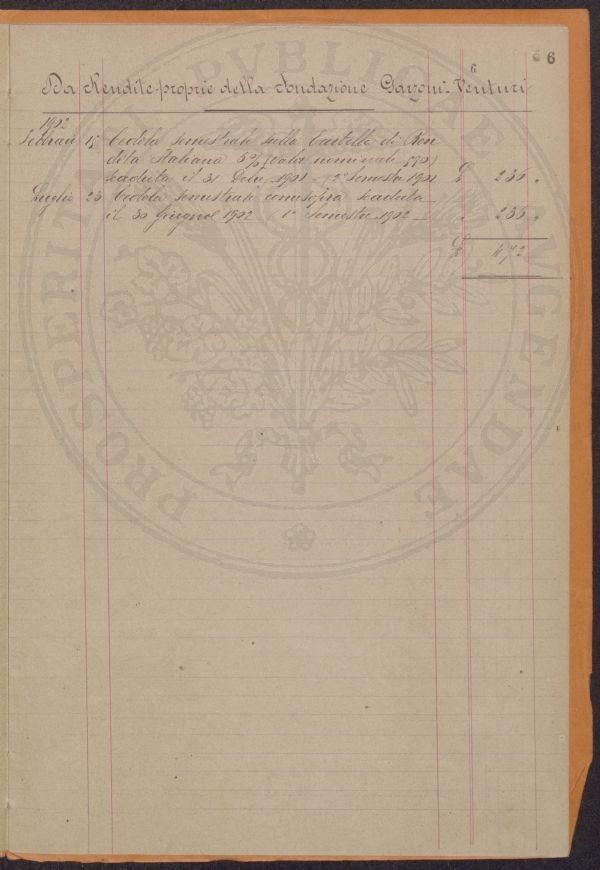 6 6
6
Da Rendite proprie della Fondazione Garzoni-Venturi
1902
Febbraio 15 Cedola semestrale sulla Cartella di Ren
dita Italiana 5% (valor nominale
scaduta il 31 Dcbre 1901 - 2º Semestre 1901 £ 236 "
Luglio 23 Cedola semestrale comesopra scaduta
il 30 Giugno 1902 1º Semestre 1902 " 236 "
£ 472
PROSPERITATI PVBLICAE AVGENDAE